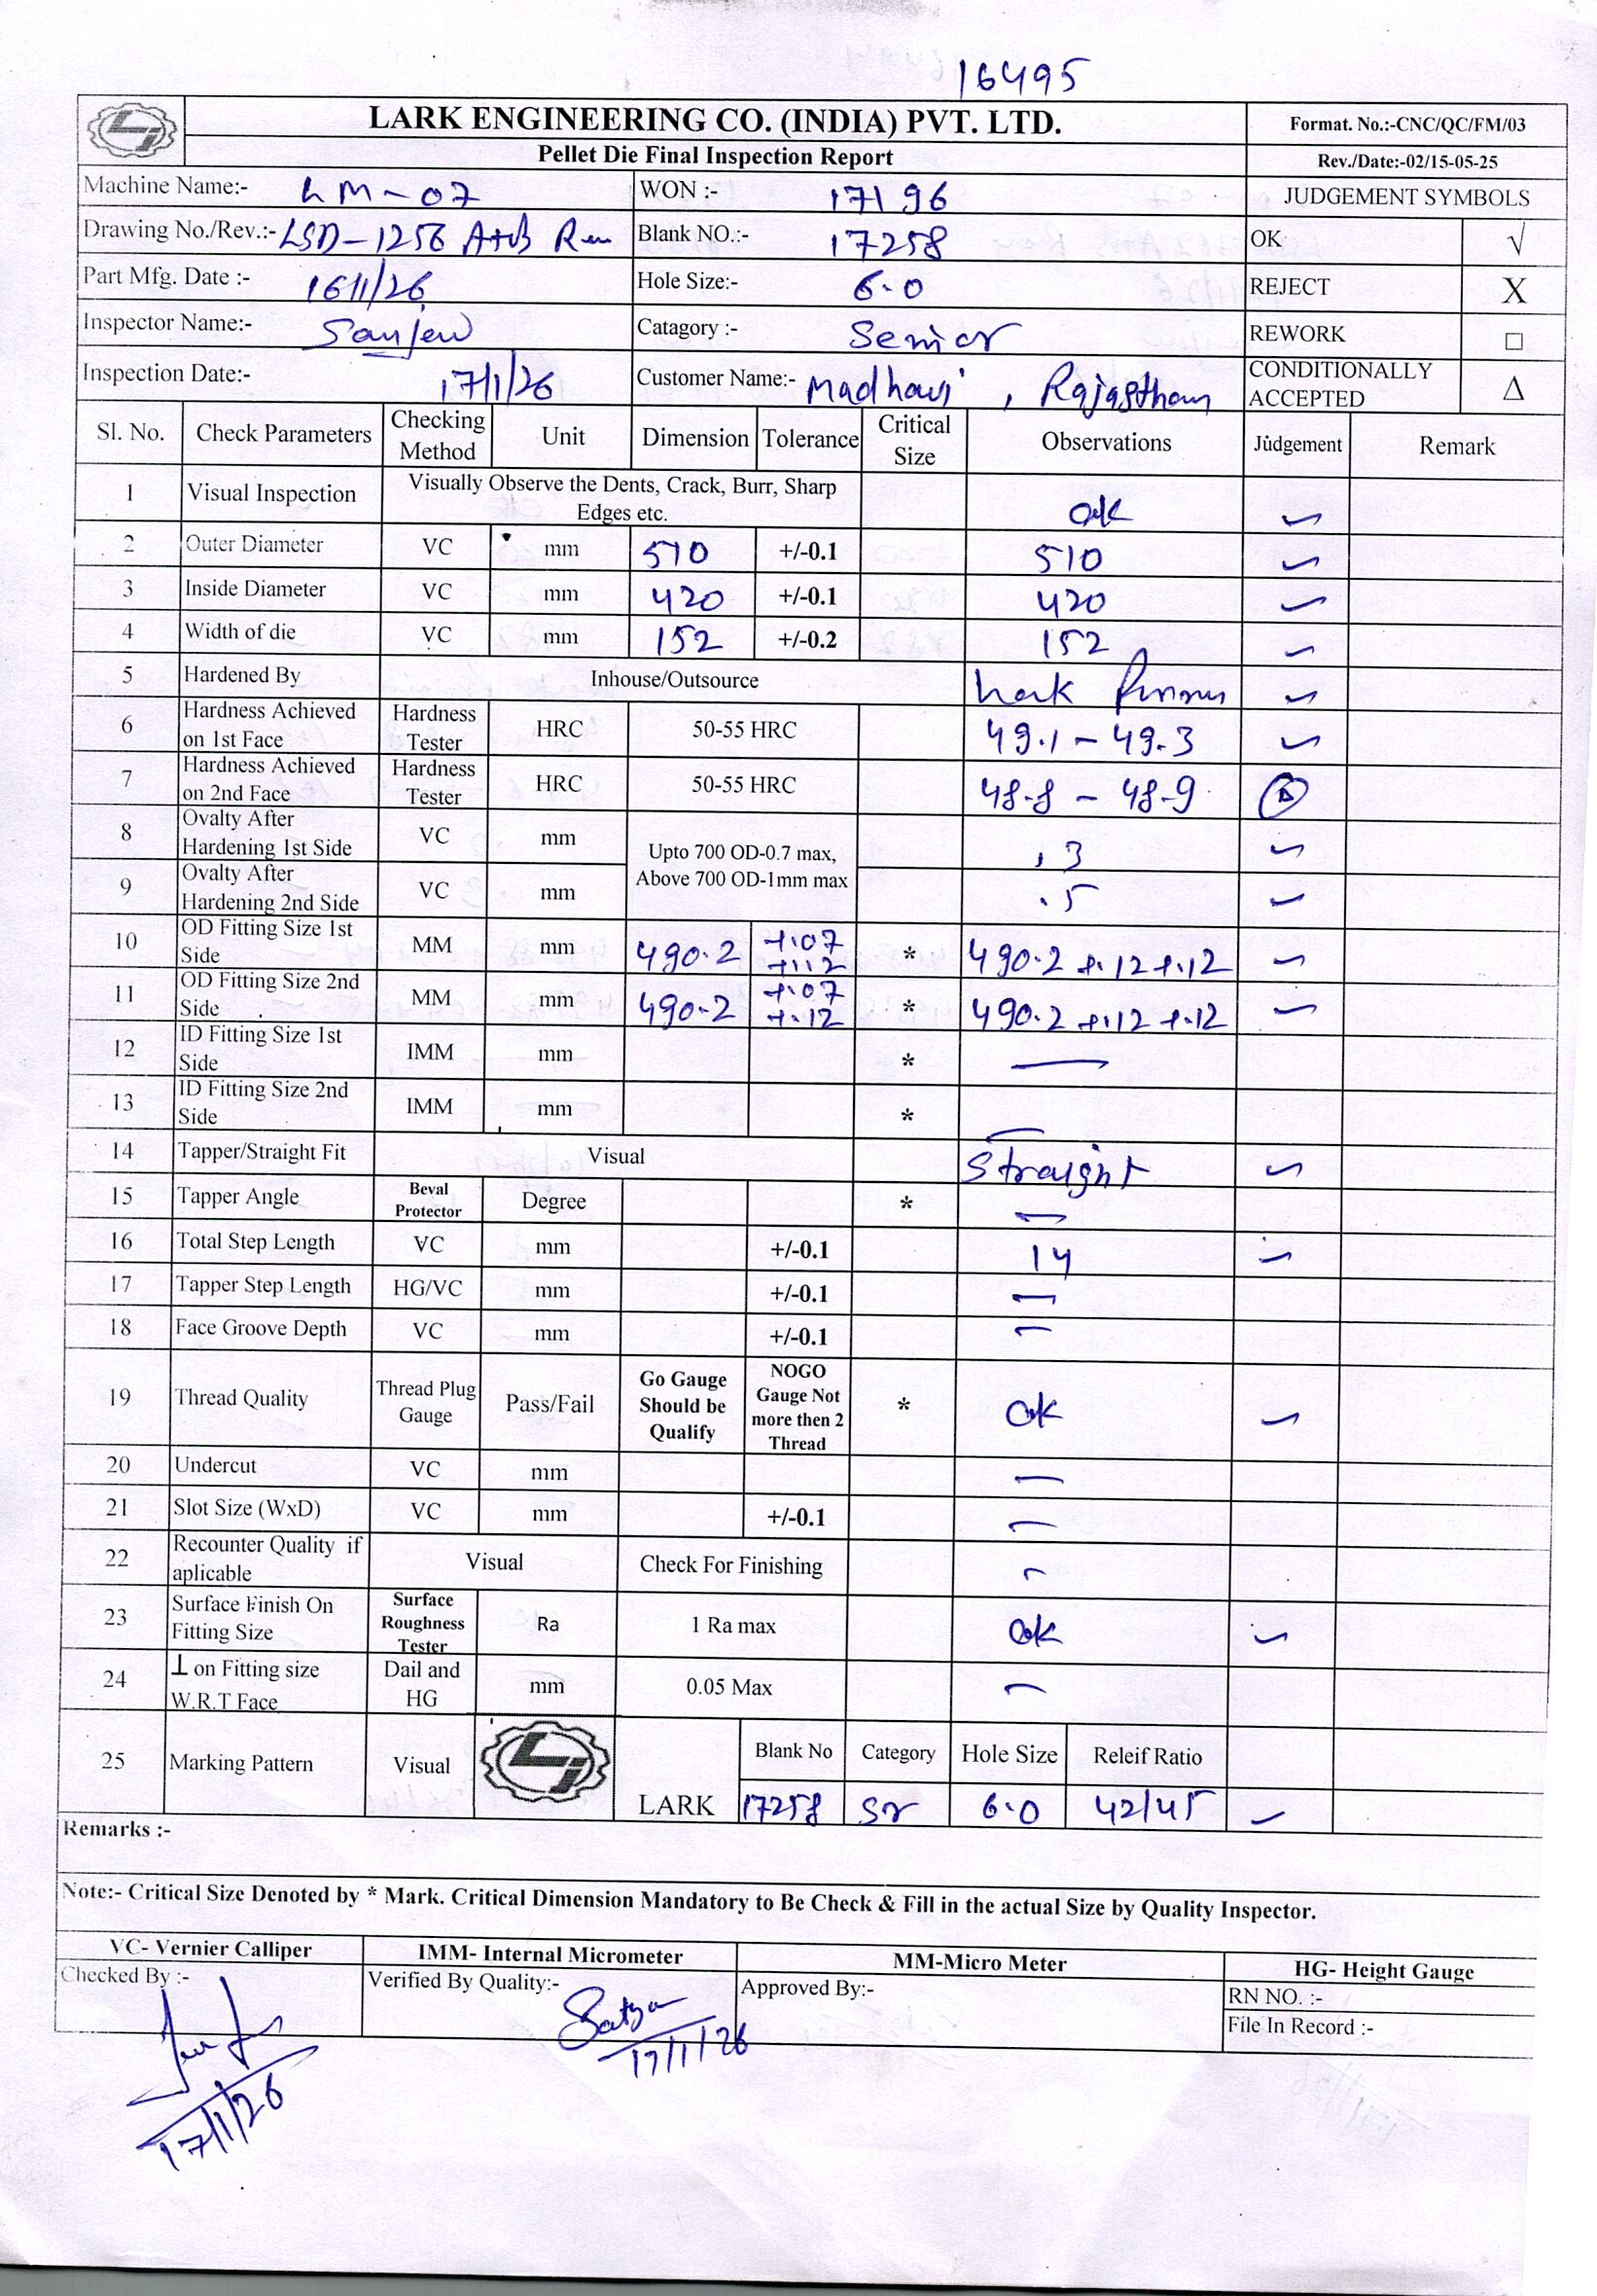 16495
LARK ENGINEERING CO. (INDIA) PVT. LTD.
Format. No.:-CNC/QC/FM/03
Pellet Die Final Inspection Report
Rev./Date:-02/15-05-25
Machine Name:- LM-07 WON :- 17196 JUDGEMENT SYMBOLS
Drawing No./Rev.:- LSD-1256 A+B Blank NO.:- 17258 OK √
Part Mfg. Date :- 16/1/26 Hole Size:- 6.0 REJECT X
Inspector Name:- Sanjeev Catagory :- Senior REWORK □
Inspection Date:- 17/1/26 Customer Name:- Madhavi , Rajasthan CONDITIONALLY ACCEPTED Δ
Sl. No. Check Parameters Checking Method Unit Dimension Tolerance Critical Size Observations Judgement Remark
1 Visual Inspection Visually Observe the Dents, Crack, Burr, Sharp Edges etc. ok ✓
2 Outer Diameter VC mm 510 +/-0.1 510 ✓
3 Inside Diameter VC mm 420 +/-0.1 420 ✓
4 Width of die VC mm 152 +/-0.2 152 ✓
5 Hardened By Inhouse/Outsource Lark ✓
6 Hardness Achieved on 1st Face Hardness Tester HRC 50-55 HRC 49.1 - 49.3 ✓
7 Hardness Achieved on 2nd Face Hardness Tester HRC 50-55 HRC 48.8 - 48.9 Δ
8 Ovalty After Hardening 1st Side VC mm Upto 700 OD-0.7 max, Above 700 OD-1mm max .3 ✓
9 Ovalty After Hardening 2nd Side VC mm .5 ✓
10 OD Fitting Size 1st Side MM mm 490.2 +.07 +.12 * 490.2 +.12 +.12 ✓
11 OD Fitting Size 2nd Side MM mm 490.2 +.07 +.12 * 490.2 +.12 +.12 ✓
12 ID Fitting Size 1st Side IMM mm * —
13 ID Fitting Size 2nd Side IMM mm * —
14 Tapper/Straight Fit Visual Straight ✓
15 Tapper Angle Beval Protector Degree * —
16 Total Step Length VC mm +/-0.1 14 ✓
17 Tapper Step Length HG/VC mm +/-0.1 —
18 Face Groove Depth VC mm +/-0.1 —
19 Thread Quality Thread Plug Gauge Pass/Fail Go Gauge Should be Qualify NOGO Gauge Not more then 2 Thread * ok ✓
20 Undercut VC mm —
21 Slot Size (WxD) VC mm +/-0.1 —
22 Recounter Quality if aplicable Visual Check For Finishing —
23 Surface Finish On Fitting Size Surface Roughness Tester Ra 1 Ra max ok ✓
24 ⊥ on Fitting size W.R.T Face Dail and HG mm 0.05 Max —
25 Marking Pattern Visual LARK Blank No Category Hole Size Releif Ratio
17258 Sr 6.0 42/45 ✓
Remarks :-
Note:- Critical Size Denoted by * Mark. Critical Dimension Mandatory to Be Check & Fill in the actual Size by Quality Inspector.
VC- Vernier Calliper IMM- Internal Micrometer MM-Micro Meter HG- Height Gauge
Checked By :- Verified By Quality:- Satya Approved By:- RN NO. :-
File In Record :-
17/1/26
17/1/26